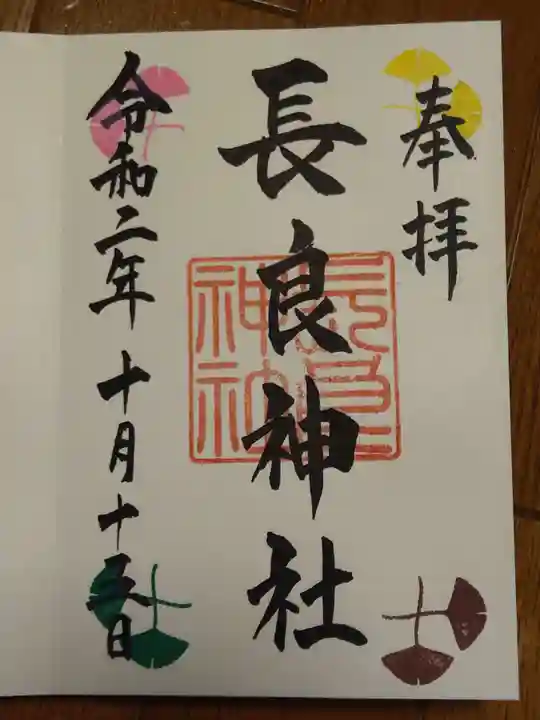 奉拝
長良神社
長良
神社
令和二年十月十五日